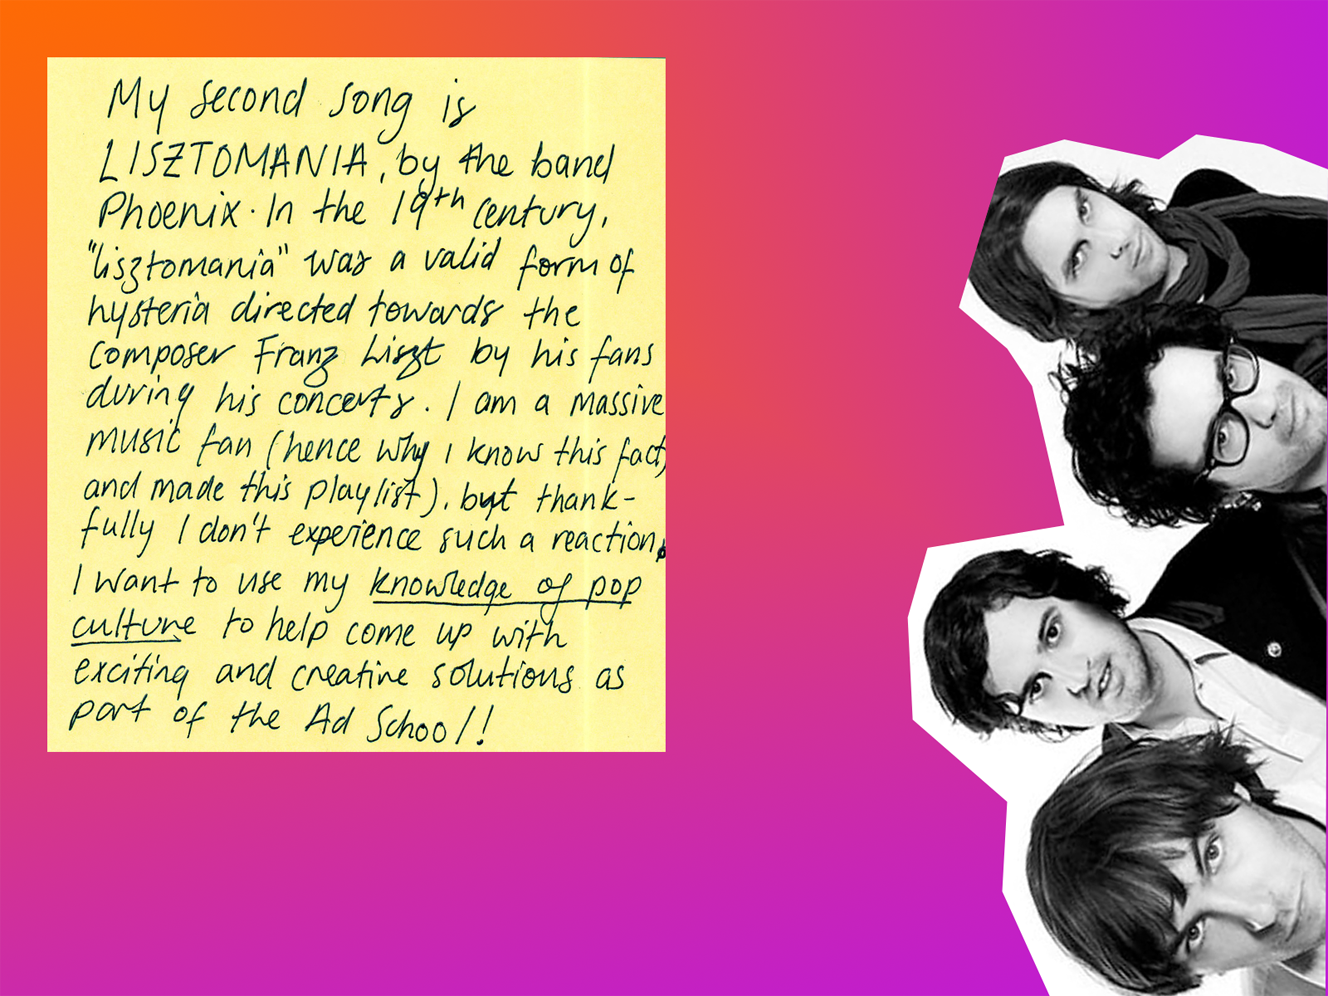 My second song is
LISZTOMANIA, by the band
Phoenix. In the 19th century,
"lisztomania" was a valid form of
hysteria directed towards the
composer Franz Liszt by his fans
during his concerts. I am a massive
music fan (hence why I know this fact,
and made this playlist), but thank-
fully I don't experience such a reaction.
I want to use my knowledge of pop
culture to help come up with
exciting and creative solutions as
part of the Ad School!